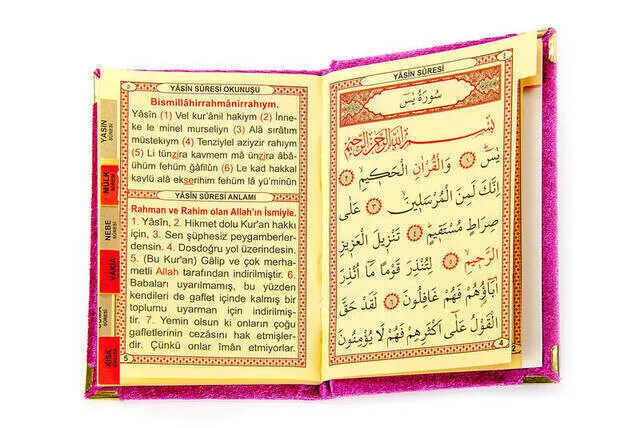 YÂSİN SÛRESİ OKUNUŞU
Bismillâhirrahmânirrahıym.
Yâsîn (1) Vel kur'ânil hakiym (2) İnne-
ke le minel murseliyn (3) Alâ sırâtım
müstekıym (4) Tenziylel aziyzir rahıym
(5) Li tünzira kavmem mâ ünzira âbâ-
ühüm fehüm gâfilûn (6) Le kad hakkal
kavlü alâ ekserihim fehüm lâ yü'minûn
YÂSİN SÛRESİ ANLAMI
Rahman ve Rahim olan Allah'ın İsmiyle.
1. Yâsîn, 2. Hikmet dolu Kur'an hakkı
için, 3. Sen şüphesiz peygamberler-
densin. 4. Dosdoğru yol üzerindesin.
5. (Bu Kur'an) Gâlip ve çok merha-
metli Allah tarafından indirilmiştir. 6.
Babaları uyarılmamış, bu yüzden
kendileri de gaflet içinde kalmış bir
toplumu uyarman için indirilmiş-
tir. 7. Yemin olsun ki onların çoğu
gafletlerinin cezasını hak etmişler-
dir. Çünkü onlar îman etmiyorlar.
5
YASİN
SÛRESİ
MÜLK
SÛRESİ
NEBE
SÛRESİ
VAKIA
SÛRESİ
KISA
1
YÂSİN SÛRESİ
سُورَةُ يٰسٓ
بِسْمِ اللّٰهِ الرَّحْمٰنِ الرَّحِيمِ
يٰسٓ ﴿١﴾ وَالْقُرْاٰنِ الْحَكِيمِ ﴿٢﴾
اِنَّكَ لَمِنَ الْمُرْسَلِينَ ﴿٣﴾ عَلٰى
صِرَاطٍ مُسْتَقِيمٍ ﴿٤﴾ تَنْزِيلَ الْعَزِيزِ
الرَّحِيمِ ﴿٥﴾ لِتُنْذِرَ قَوْمًا مَٓا اُنْذِرَ
اٰبَٓاؤُ۬هُمْ فَهُمْ غَافِلُونَ ﴿٦﴾ لَقَدْ حَقَّ
الْقَوْلُ عَلٰٓى اَكْثَرِهِمْ فَهُمْ لَا يُؤْمِنُونَ
4
2